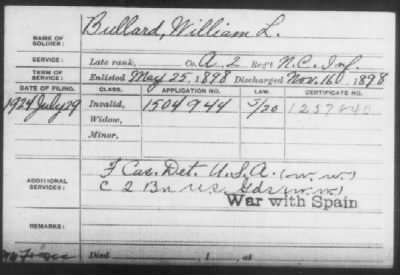 Bullard, William L.
NAME OF SOLDIER:
SERVICE: Late rank, Co. A, 2 Reg't N.C. Inf.
TERM OF SERVICE: Enlisted May 25, 1898 Discharged Nov. 16, 1898
DATE OF FILING. CLASS. APPLICATION NO. LAW. CERTIFICATE NO.
1924 July 29 Invalid, 1504944 5/20 1257840
Widow,
Minor,
ADDITIONAL SERVICES:
F Cas. Det. U.S.A. (w.w.)
C 2 Bn U.S. Gds (w.w.)
War with Spain
REMARKS:
Died , 1 , at